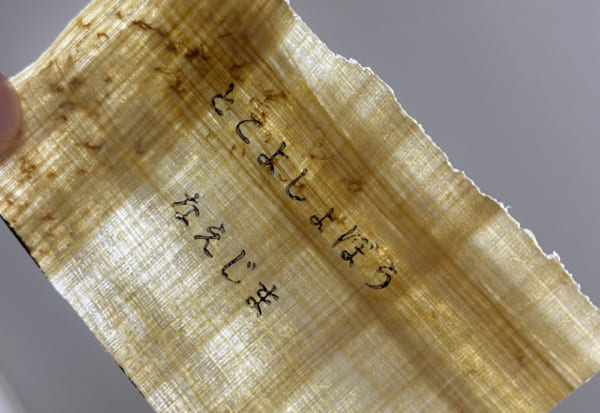 とてよしょぼう
なえじま